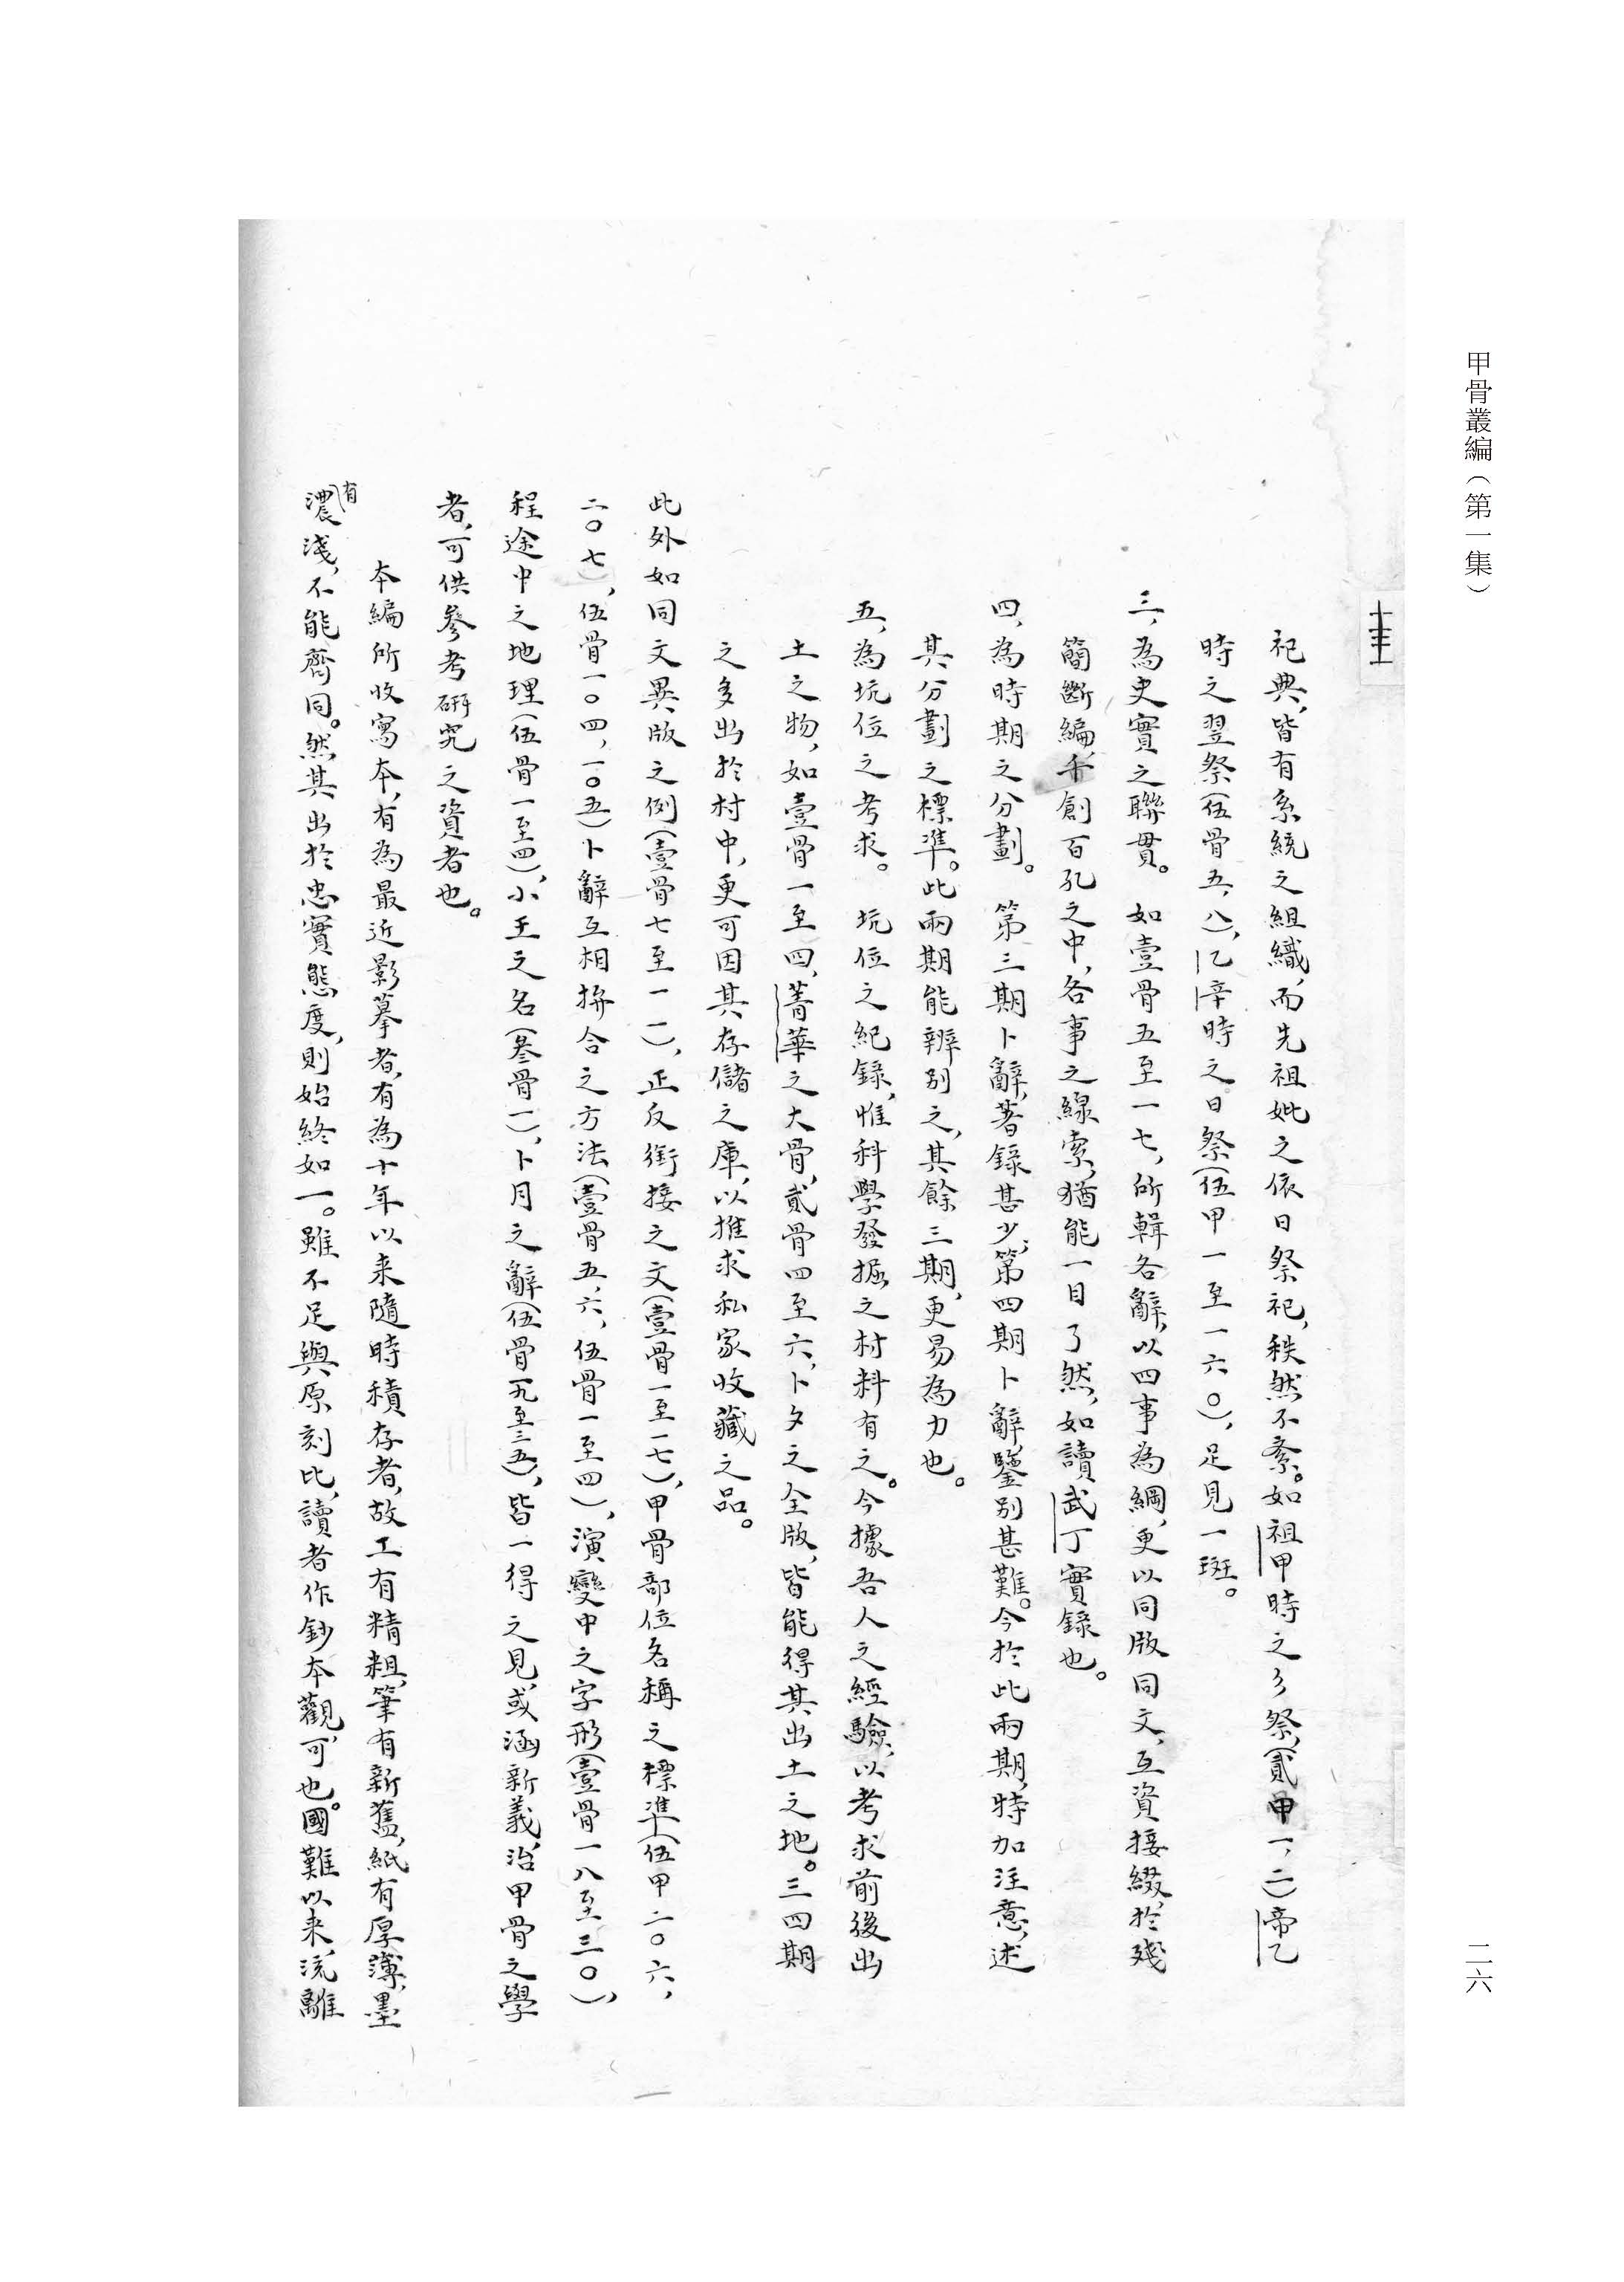 甲骨叢編（第一集）
二六
祀典，皆有系統之組織，而先祖妣之依日祭祀，秩然不紊。如祖甲時之彡祭，（貳甲一，二）帝乙
時之翌祭（伍骨五，八），乙辛時之日祭（伍甲一至一六〇），足見一斑。
三，為史實之聯貫。如壹骨五至一七，所輯各辭，以四事為綱，更以同版同文，互資接綴，於殘
簡斷編，千創百孔之中，各事之線索，猶能一目了然，如讀武丁實錄也。
四，為時期之分劃。第三期卜辭，著錄甚少，第四期卜辭鑒別甚難。今於此兩期，特加注意，述
其分劃之標準。此兩期能辨別之，其餘三期，更易為力也。
五，為坑位之考求。坑位之紀錄，惟科學發掘之材料有之。今據吾人之經驗，以考求前後出
土之物，如壹骨一至四，菁華之大骨，貳骨四至六，卜夕之全版，皆能得其出土之地。三四期
之多出於村中，更可因其存儲之庫，以推求私家收藏之品。
此外如同文異版之例（壹骨七至一一），正反銜接之文（壹骨一至一七），甲骨部位名稱之標準（伍甲二〇六，
二〇七），伍骨一〇四，一〇五）卜辭互相拚合之方法（壹骨五，六，伍骨一至四），演變中之字形（壹骨一八至三〇），
程途中之地理（伍骨一至四），小王之名（叁骨一），卜月之辭（伍骨一九至三五），皆一得之見，或涵新義，治甲骨之學
者，可供參考研究之資者也。
本編所收寫本，有為最近影摹者，有為十年以來隨時積存者，故工有精粗，筆有新舊，紙有厚薄，墨
有濃淺，不能齊同。然其出於忠實態度，則始終如一。雖不足與原刻比，讀者作鈔本觀，可也。國難以來，流離